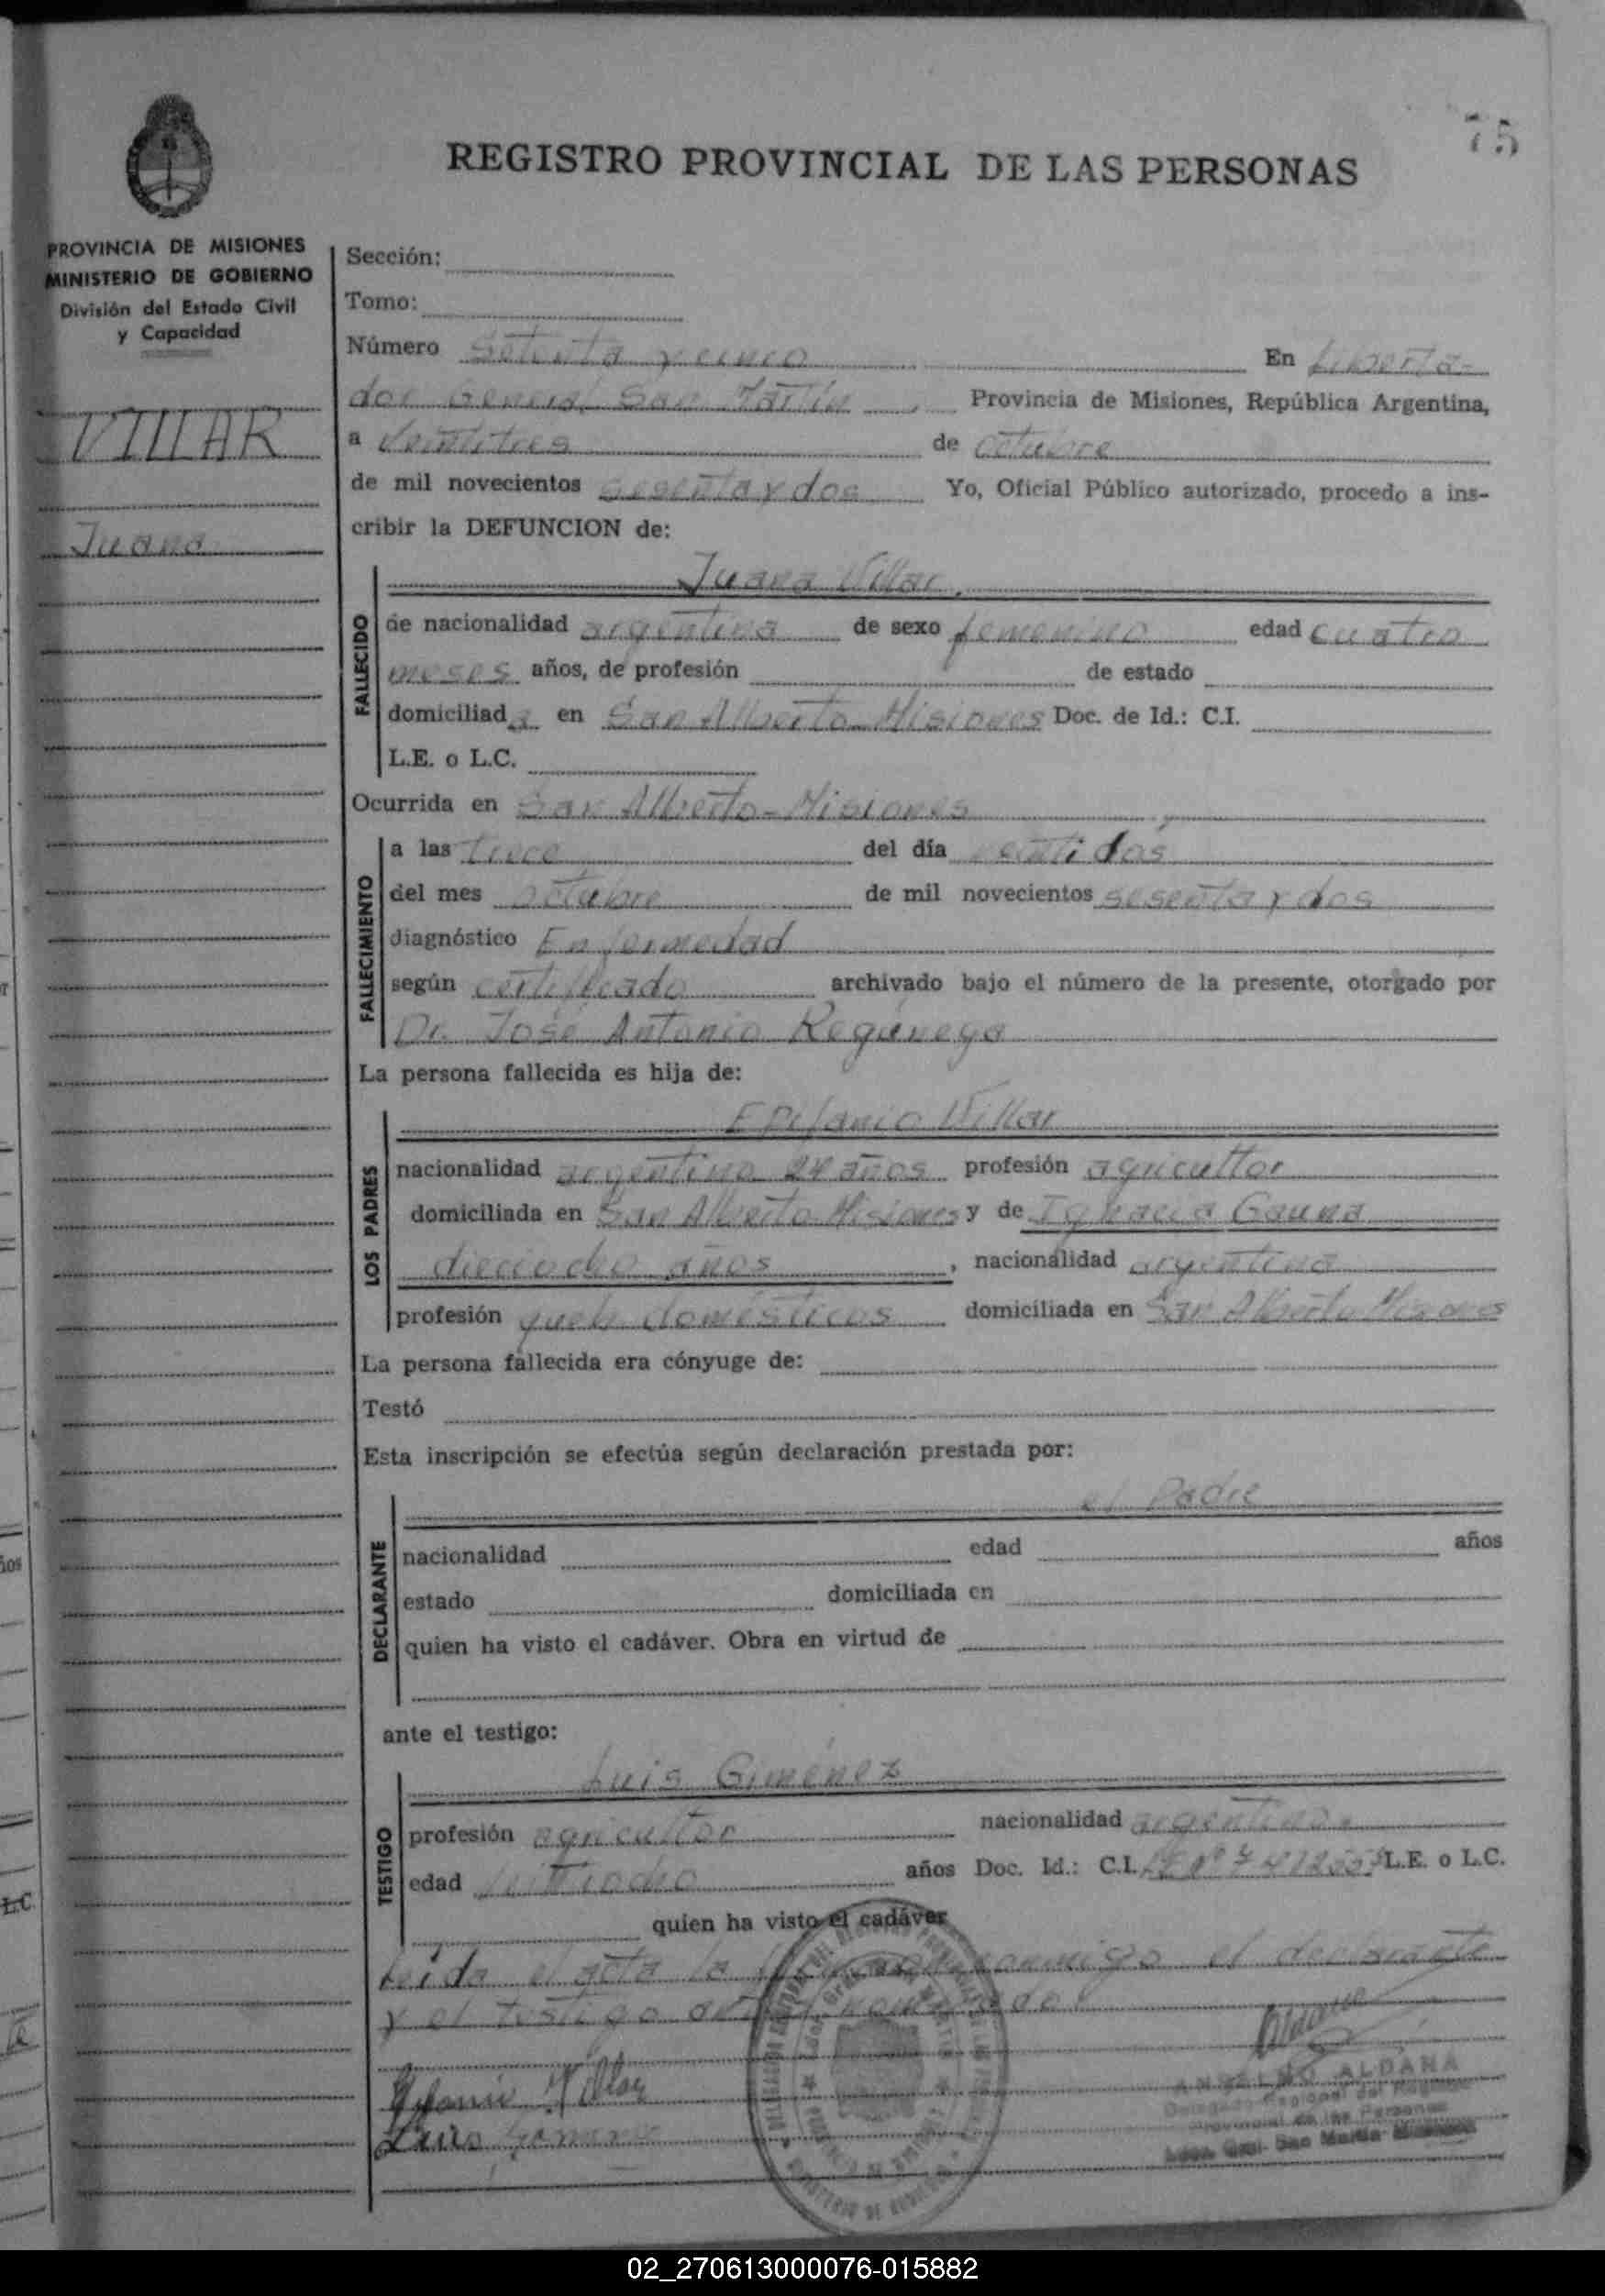 75
REGISTRO PROVINCIAL DE LAS PERSONAS
PROVINCIA DE MISIONES
MINISTERIO DE GOBIERNO
División del Estado Civil
y Capacidad
VILLAR
Juana
Sección:
Tomo:
Número Setenta y cinco En Liberta-
dor General San Martín, Provincia de Misiones, República Argentina,
a veintitres de octubre
de mil novecientos sesenta y dos Yo, Oficial Público autorizado, procedo a ins-
cribir la DEFUNCION de:
Juana Villar
FALLECIDO
de nacionalidad argentina de sexo femenino edad cuatro
meses años, de profesión de estado
domiciliada en San Alberto-Misiones Doc. de Id.: C.I.
L.E. o L.C.
Ocurrida en San Alberto-Misiones
FALLECIMIENTO
a las trece del día veintidos
del mes octubre de mil novecientos sesenta y dos
diagnóstico Enfermedad
según certificado archivado bajo el número de la presente, otorgado por
Dr. José Antonio
La persona fallecida es hija de:
LOS PADRES
Epifanio Villar
nacionalidad argentino 24 años profesión agricultor
domiciliada en San Alberto-Misiones y de Ignacia Gauna
dieciocho años, nacionalidad argentina
profesión queh. domésticos domiciliada en San Alberto Misiones
La persona fallecida era cónyuge de:
Testó
Esta inscripción se efectúa según declaración prestada por:
DECLARANTE
el Padre
nacionalidad edad años
estado domiciliada en
quien ha visto el cadáver. Obra en virtud de
ante el testigo:
TESTIGO
Luis Giménez
profesión agricultor nacionalidad argentino
edad veintiocho años Doc. Id.: C.I. L.E. o L.C.
quien ha visto el cadáver
Leída el acta la conmigo el declarante
y el testigo
Villar
Luis
ANSELMO ALDANA
Delegado Regional del Registro
Provincial de las Personas
Ldor. Gral. San Martín Misiones
02_270613000076-015882